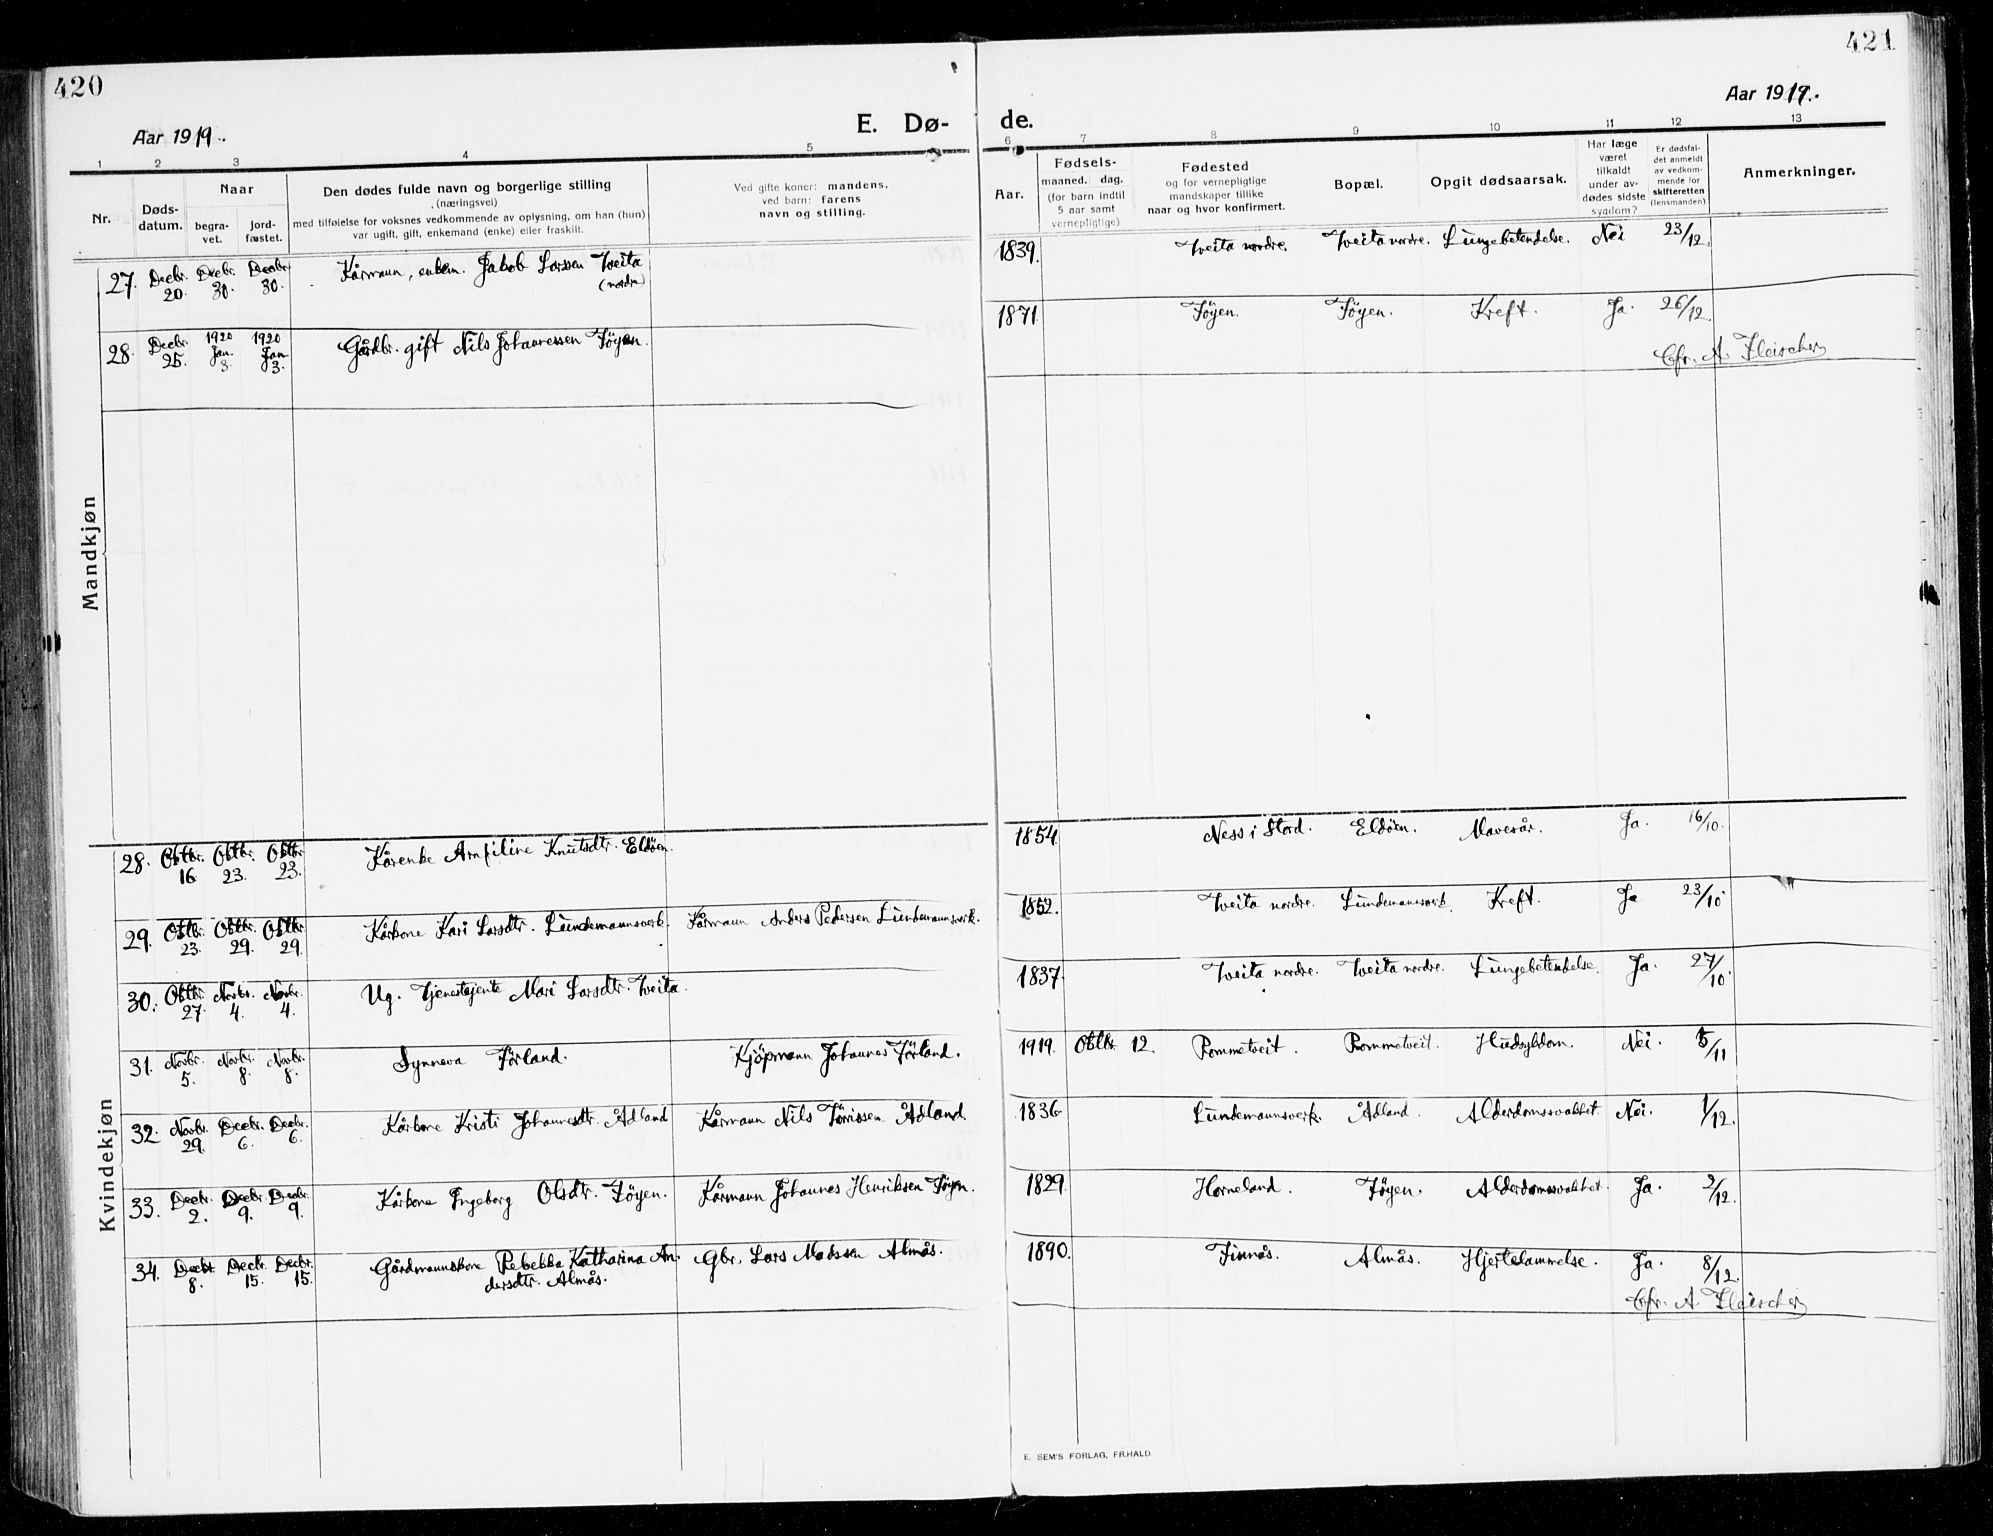 420
Aar 1919.
E. Dø-
1 2 3 4 5
Nr.
Døds-
datum.
Naar
begra-
vet.
jord-
fæstet.
Den dødes fulde navn og borgerlige stilling
(næringsvei)
med tilføielse for voksnes vedkommende av oplysning, om han (hun)
var ugift, gift, enkemand (enke) eller fraskilt.
Ved gifte koner: mandens,
ved barn: farens
navn og stilling.
Mandkjøn
27. Decbr. 20. Decbr. 30. Decbr. 30. Kårmann, enkem. Jakob Larssen Tveita
(nordre)
28. Decbr. 25. 1920 Jan. 3. 1920 Jan. 3. Gårdbr. gift Nils Johannessen Tøyen.
Kvindekjøn
28. Oktbr. 16. Oktbr. 23. Oktbr. 23. Kårenke Knutsdtr. Eldöen.
29. Oktbr. 23. Oktbr. 29. Oktbr. 29. Kårkone Kari Larsdtr. Lundemannsverk. Kårmann Anders Pedersen Lundemannsverk.
30. Oktbr. 27. Novbr. 4. Novbr. 4. Ug. Tjenestejente Mari Larsdtr. Tveita.
31. Novbr. 5. Novbr. 8. Novbr. 8. Synneva Førland. Kjöpmann Johannes Førland.
32. Novbr. 29. Decbr. 6. Decbr. 6. Kårkone Kristi Johannesdtr. Ådland Kårmann Nils Tørrissen Ådland.
33. Decbr. 2. Decbr. 9. Decbr. 9. Kårkone Ingeborg Olsdtr. Tøyen. Kårmann Johannes Henriksen Tøyen.
34. Decbr. 8. Decbr. 15. Decbr. 15. Gårdmannskone Rebekka Katharina An-
dersdtr. Almås. Gbr. Lars Madssen Almås.
421
Aar 1919.
de.
6 7 8 9 10 11 12 13
Aar.
Fødsels-
maaned. dag.
(for barn indtil
5 aar samt
vernepligtige)
Fødested
og for vernepligtige
mandskaper tillike
naar og hvor konfirmert.
Bopæl.
Opgit dødsaarsak.
Har læge
været
tilkaldt
under av-
dødes sidste
sygdom?
Er dødsfal-
det anmeldt
av vedkom-
mende for
skifteretten
(lensmanden)
Anmerkninger.
1839. Tveita nordre. Tveita nordre. Lungebetendelse. Nei 23/12.
1871. Tøyen. Tøyen. Kreft. Ja. 26/12.
Cfr. A. Fleischer
1854. Ness i Stord. Eldöen. Mavesår. Ja. 16/10.
1852. Tveita nordre. Lundemannsverk. Kreft. Ja 23/10
1837. Tveita nordre. Tveita nordre. Lungebetendelse. Ja. 27/10.
1919. Oktbr. 12. Rommetveit. Rommetveit. Hudsykdom. Nei. 5/11
1836 Lundemannsverk. Ådland. Alderdomssvakhet Nei. 1/12.
1829. Horneland. Tøyen. Alderdomssvakhet. Ja. 2/12.
1890. Finnås. Almås. Hjertelammelse. Ja. 8/12.
Cfr. A. Fleischer
E. SEM'S FORLAG, FR.HALD.